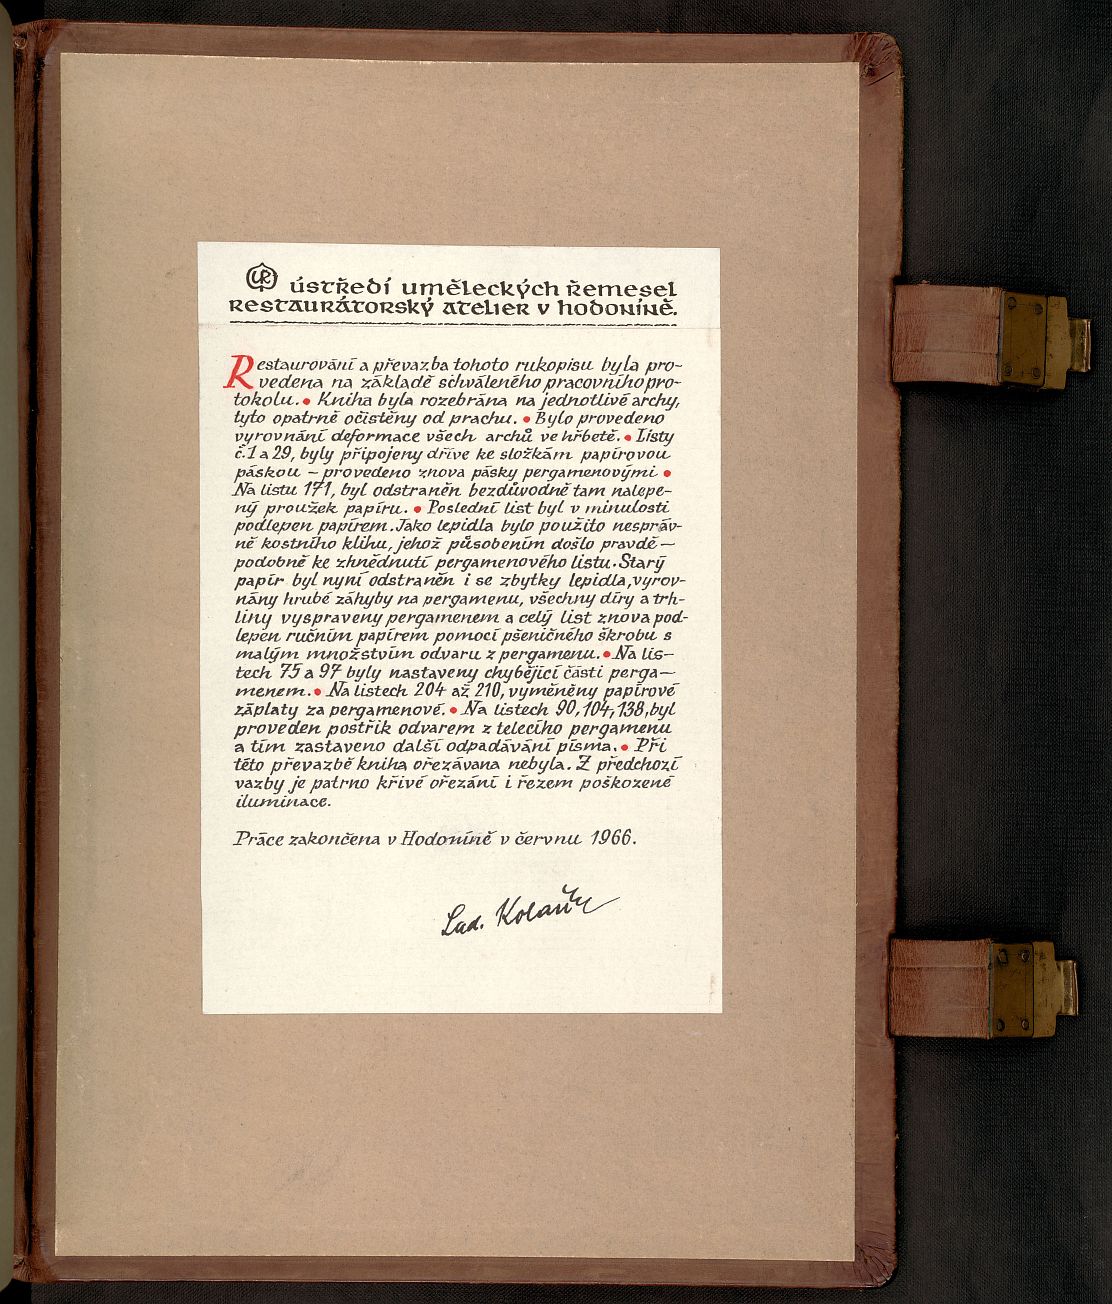 ÚSTŘEDÍ UMĚLECKÝCH ŘEMESEL
RESTAURÁTORSKÝ ATELIER V HODONÍNĚ.
Restaurování a převazba tohoto rukopisu byla pro-
vedena na základě schváleného pracovního pro-
tokolu. • Kniha byla rozebrána na jednotlivé archy,
tyto opatrně očištěny od prachu. • Bylo provedeno
vyrovnání deformace všech archů ve hřbetě. • Listy
č. 1 a 29, byly připojeny dříve ke složkám papírovou
páskou – provedeno znova pásky pergamenovými •
Na listu 171, byl odstraněn bezdůvodně tam nalepe-
ný proužek papíru. • Poslední list byl v minulosti
podlepen papírem. Jako lepidla bylo použito nespráv-
ně kostního klihu, jehož působením došlo pravdě–
podobně ke zhnědnutí pergamenového listu. Starý
papír byl nyní odstraněn i se zbytky lepidla, vyrov-
nány hrubé záhyby na pergamenu, všechny díry a trh-
liny vyspraveny pergamenem a celý list znova pod-
lepen ručním papírem pomocí pšeničného škrobu s
malým množstvím odvaru z pergamenu. • Na lis-
tech 75 a 97 byly nastaveny chybějící části perga–
menem. • Na listech 204 až 210, vyměněny papírové
záplaty za pergamenové. • Na listech 90, 104, 138, byl
proveden postřik odvarem z telecího pergamenu
a tím zastaveno další odpadávání písma. • Při
této převazbě kniha ořezávana nebyla. Z předchozí
vazby je patrno křivé ořezání i řezem poškozené
iluminace.
Práce zakončena v Hodoníně v červnu 1966.
Lad. Kolařík